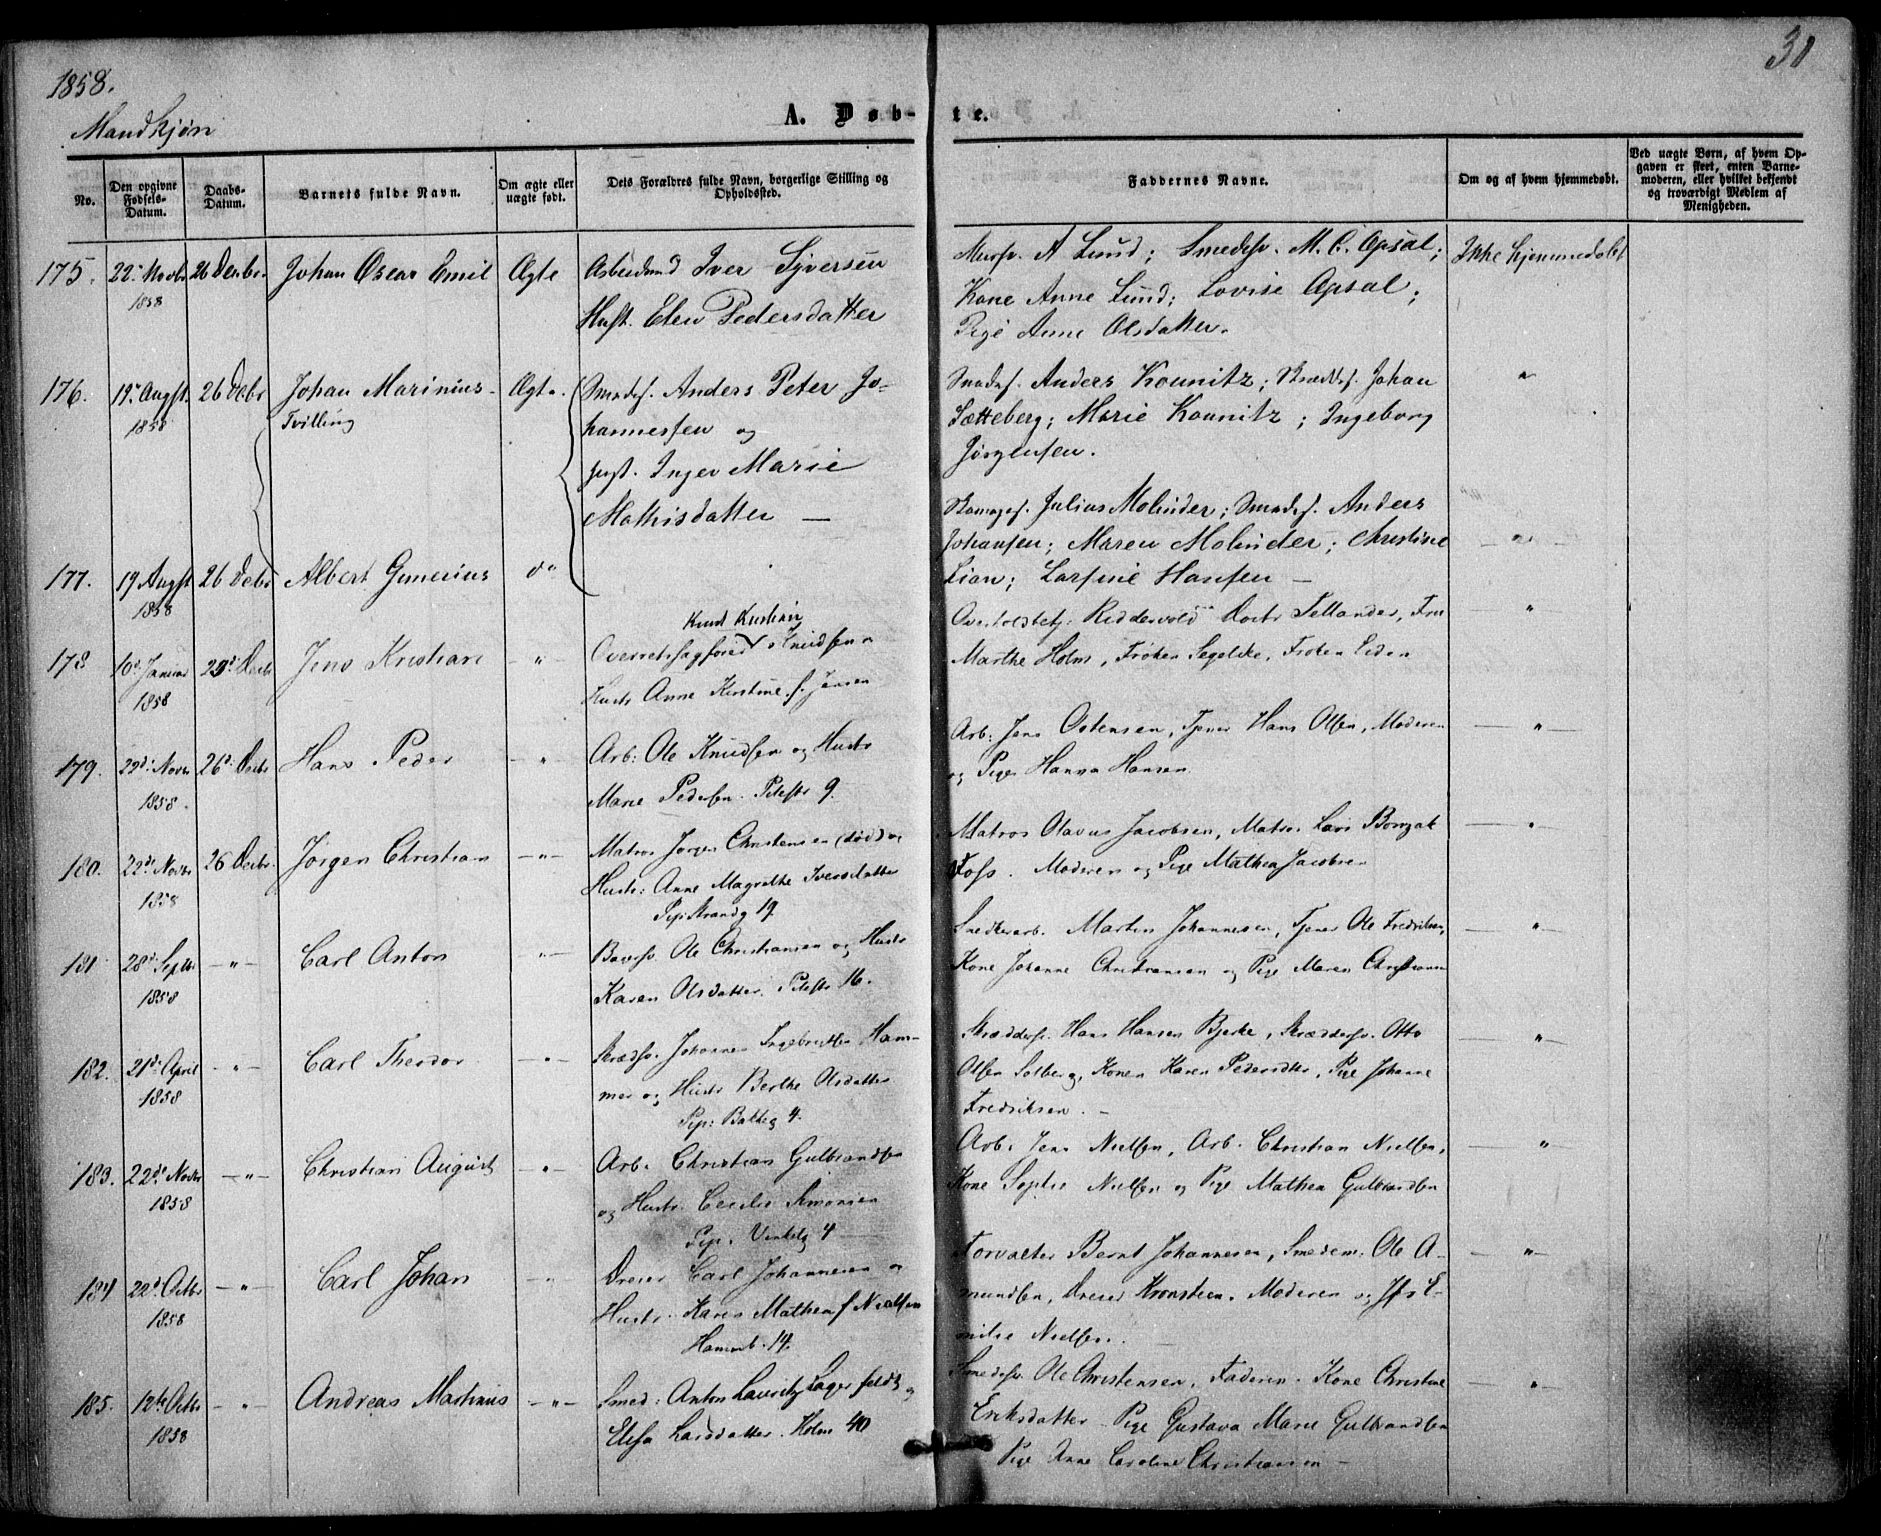 1858.
30
Mandkjøn
A. Døb-
te.
No.
Den opgivne Fødsels-Datum.
Daabs-Datum.
Barnets fulde Navn.
Om ægte eller uægte født.
Dets Forældres fulde Navn, borgerlige Stilling og Opholdssted.
Faddernes Navne.
Om og af hvem hjemmedøbt.
Ved uægte Børn, af hvem Opgaven er skeet, enten Barnemoderen, eller hvilket bekjendt og troværdigt Medlem af Menigheden.
175. 22. Novbr 26 Decbr. Johan Oscar Emil Ægte Arbeidsmd Iver Syversen Mursv. A Lund; Smedesv. M. C. Opsal; Ikke hjemmedøbt
1858 Hust. Elen Pedersdatter Kone Anne Lund; Lovise Opsal;
Pige Anne Olsdatter.
176. 19. Augst. 26 Decbr Johan Marinius Ægte. Smedes. Anders Peter Jo- Smedes. Anders Kounitz; Skræds. Johan "
1858 Tvilling hannessen og Sætteberg; Marie Kounitz; Ingeborg
Hust. Inger Marie Jørgensen.
Mathisdatter — Julius Molinder; Smedes. Anders
Johansen; Maren Molinder; Christine —"—
177. 19 Augst 26 Decbr Albert Gunerius do Lian; Larsine Hansen —
1858 Knud Kristian Ridderwold Tellander, Fru "
178 10d. Januar 29d. Decbr Jens Kristian —"— Overretssagfører Knudsen o Marthe Holm, Frøken Segelcke, Frøken
1858 Hustr Anne Kirstine f. Jensen
179. 22d. Novbr 26d. Decbr Hans Peder —"— Arb: Ole Knudsen og Hustr Arb: Jens Ostensen, Tjener Hans Olsen, Moderen —"—
1858. Marie Pedersen. Pilestr 9. og Pige Hanna Hansen
180. 22d. Novbr 26 Decbr. Jørgen Christian —"— Matros Jørgen Christensen (død) og Matros Olavus Jacobsen, Matros Lars —"—
1858 Hustr: Anne Magrethe Iversdatter Foss. Moderen og Pige Mathea Jacobsen
Pip: Strandg 19
181 28d. Septbr —"— Carl Anton —"— Ole Christiansen og Hustr Snedkerarb. Martin Johannesen, Tjener Ole Fredriksen, —"—
1858 Karen Olsdatter. Pilestr 16. Kone Johanne Christiansen og Pige Maren Christiansen
182. 21d. April —"— Carl Theodor —"— Skrædsv. Johannes Ingebretsen Ham- Skræddersv. Hans Hansen Bjerke, Skræddersv. Otto —"—
1858 mer og Hustr Berthe Olsdatter Olsen Solberg, Konen Karen Pedersdtr, Pige Johanne
Pip: Bakkeg 4. Fredriksen. —
183. 22d. Novbr —"— Christian August —"— Arb. Christian Gulbrandsen Arb. Jens Nielsen, Arb. Christian Nielsen, —"—
1858 og Hustr. Cecilie Simonsen Kone Sophie Nielsen og Pige Mathea Gulbrandsen
Pip. Vinkelg 4
184 22d. Octbr —"— Carl Johan —"— Dreier Carl Johannesen og Forvalter Bernt Johannesen, Smedem: Ole A- —"—
1858 Hustr. Karen Mathea f Nielsen mundsen, Dreier Kronsteen. Moderen og Jfr E-
14. milie Nielsen.
185. 12te Octbr —"— Andreas Martinus —"— Smed: Anton Lauritz Lagerfeldt og Smedesv. Ole Christensen, Faderen. Kone Christine —"—
1858 Elisa Larsdatter. Holm 40 Eriksdatter. Pige Gustava Marie Gulbrandsen
Pige Anne Caroline Christiansen —